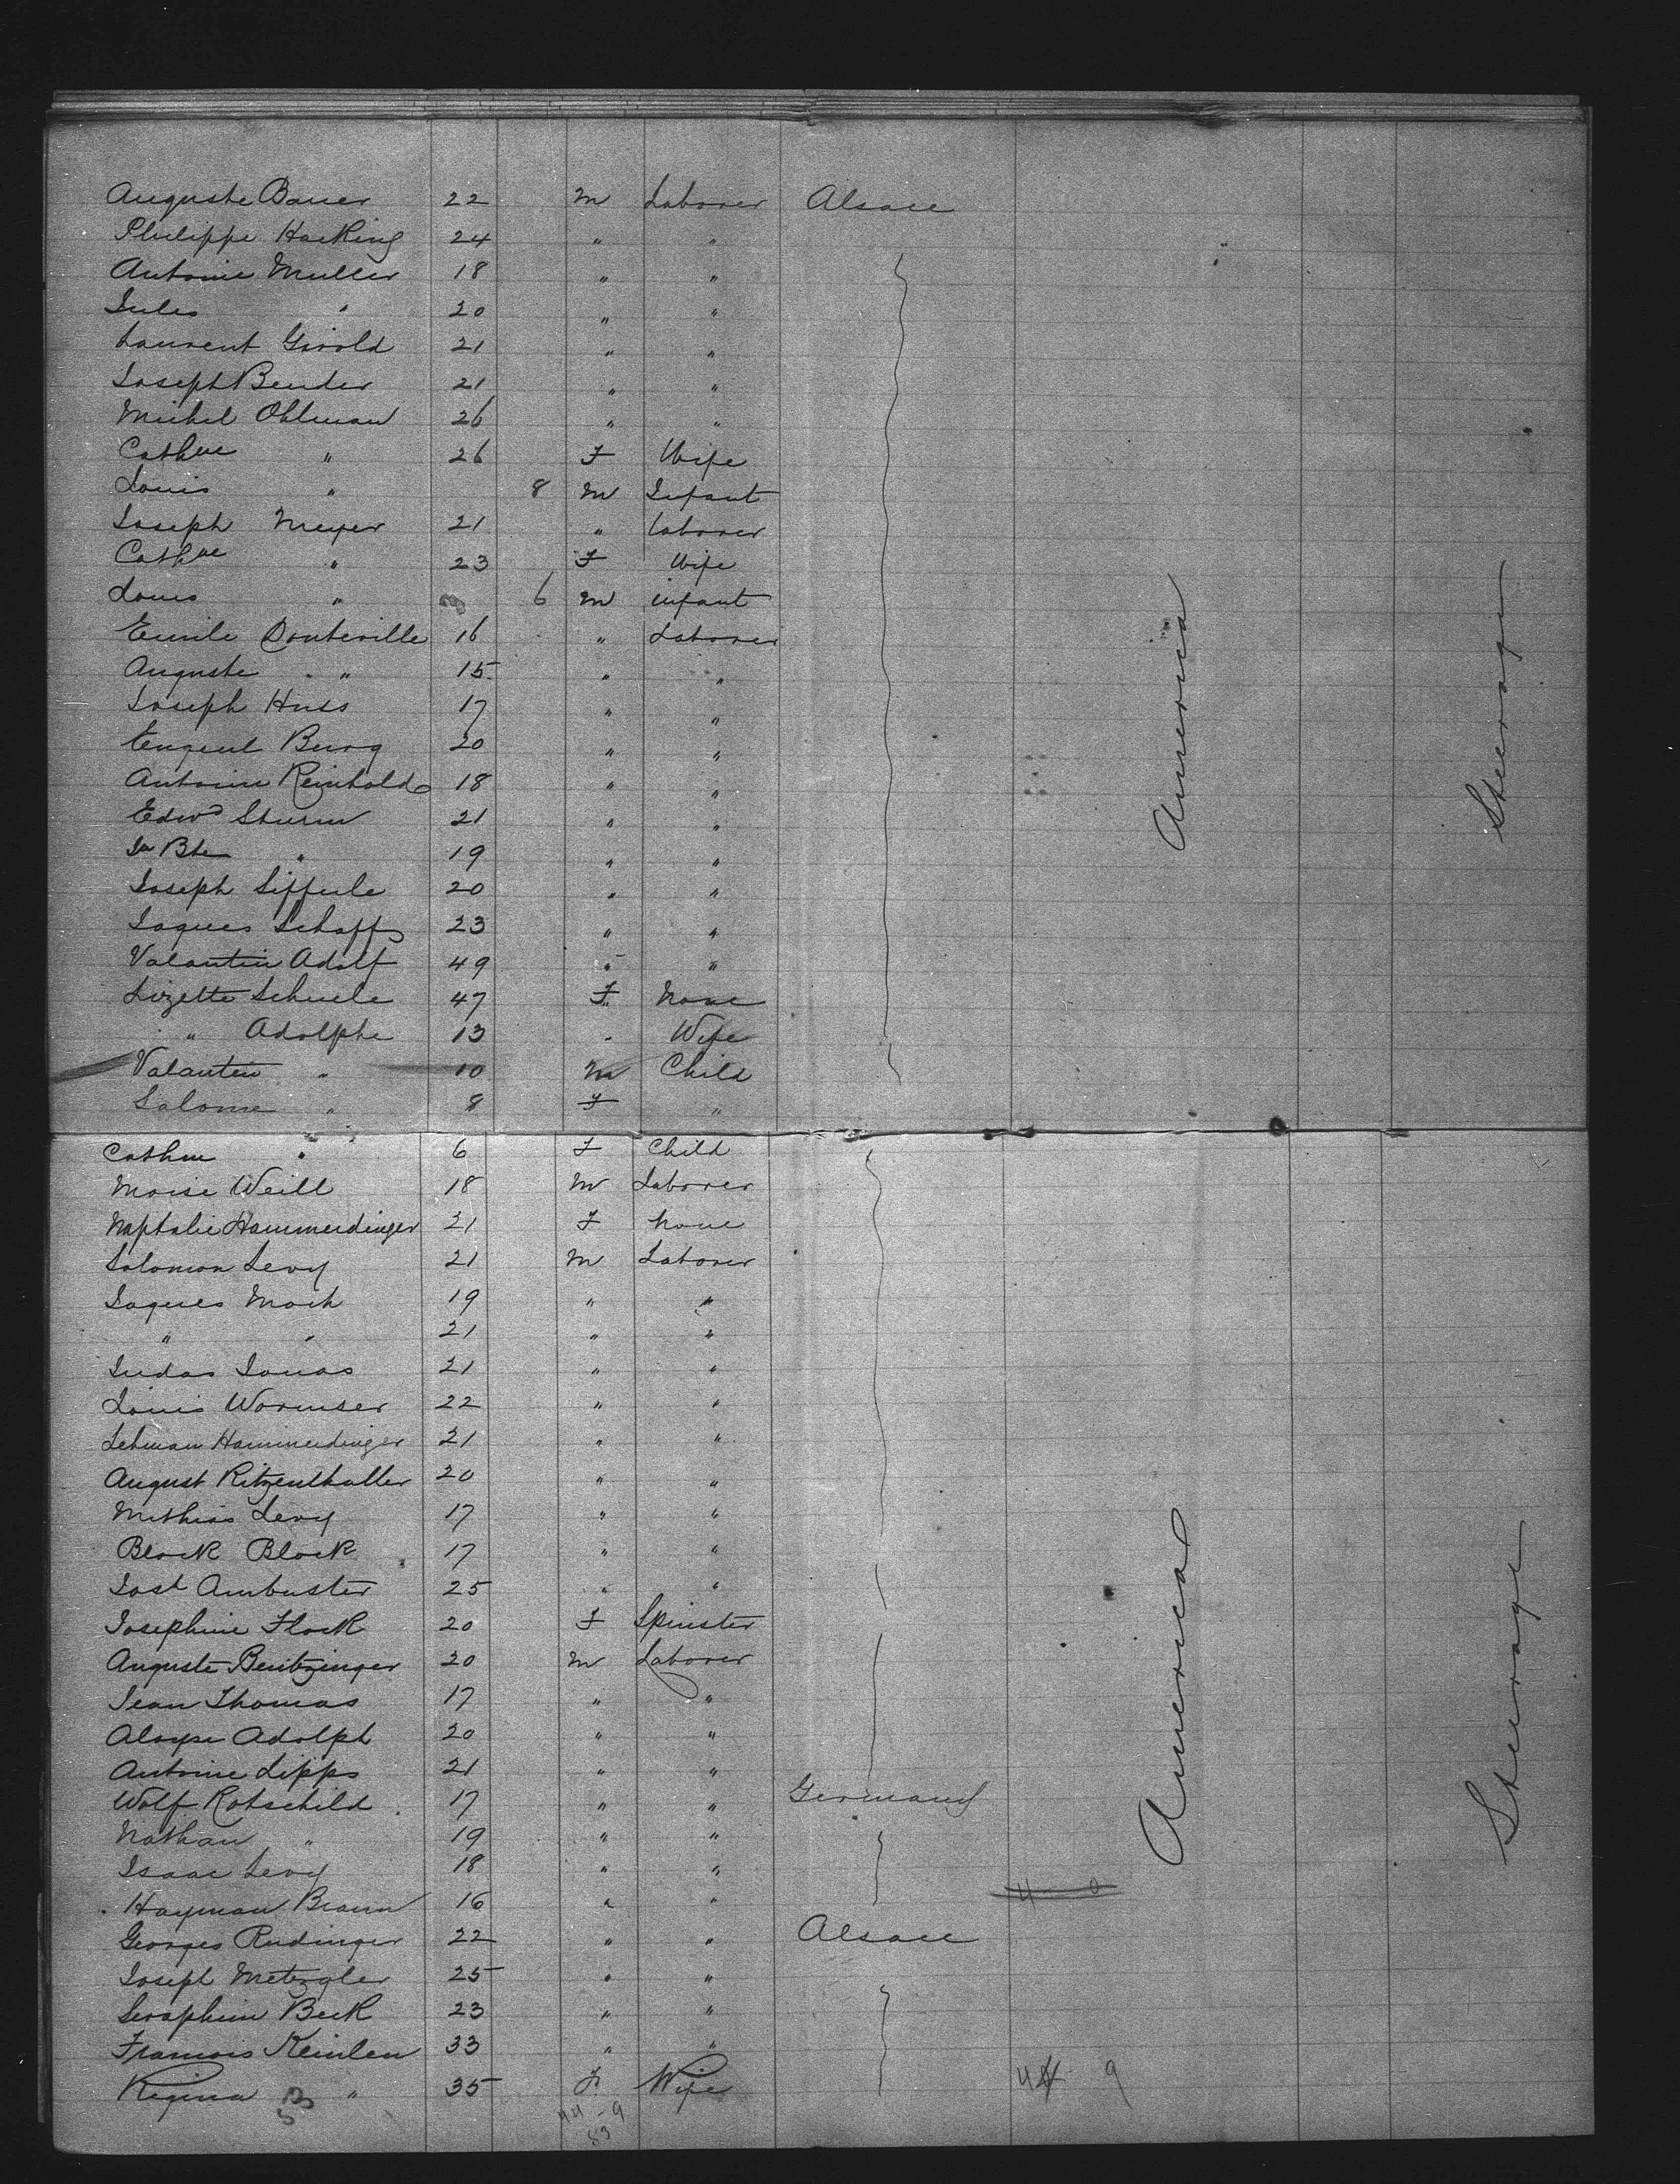 Auguste Bauer 22 M Laborer Alsace
Philippe Hacking 24 " "
Antoine Muller 18 " "
Jules " 20 " "
Laurent Girold 21 " "
Joseph Bender 21 " "
Michel Ohlman 26 " "
Cathne " 26 F Wife
Louis " 8 M Infant
Joseph Meyer 21 " Laborer
Cathne " 23 F Wife
Louis " 6 M infant
Emile Donteville 16 " Laborer
Auguste " 15 " "
Joseph Huss 17 " "
Eugene Burg 20 " "
Antoine Reinhold 18 " "
Edwd Sturm 21 " "
Jn Bte " 19 " "
Joseph Sifferle 20 " "
Jaques Schaff 23 " "
Valantin Adolf 49 " "
Lizette Schuele 47 F None
" Adolphe 13 " Wife
Valantin " 10 M Child
Salome " 8 F "
America
Steerage
Cathne " 6 F Child
Moise Weill 18 M Laborer
Naphtalie Hammerdinger 21 F None
Solomon Levy 21 M Laborer
Jaques Moch 19 " "
" " 21 " "
Judas Jonas 21 " "
Louis Wormser 22 " "
Lehman Hammerdinger 21 " "
August Ritzenthaller 20 " "
Mathias Levy 17 " "
Block Block 17 " "
Jost Ambuster 25 " "
Josephine Flock 20 F Spinster
Auguste Bentzinger 20 M Laborer
Jean Thomas 17 " "
Aloyse Adolph 20 " "
Antoine Lipps 21 " "
Wolf Rotschild 17 " " Germany
Nathan " 19 " "
Isaac Levy 18 " "
Hayman Braun 16 " "
Georges Rudinger 22 " " Alsace
Joseph Metzgler 25 " "
Seraphim Beck 23 " "
Francois Keinlen 33 " "
Regina " 35 F Wife 44 9
53 44-9
53
America
Steerage